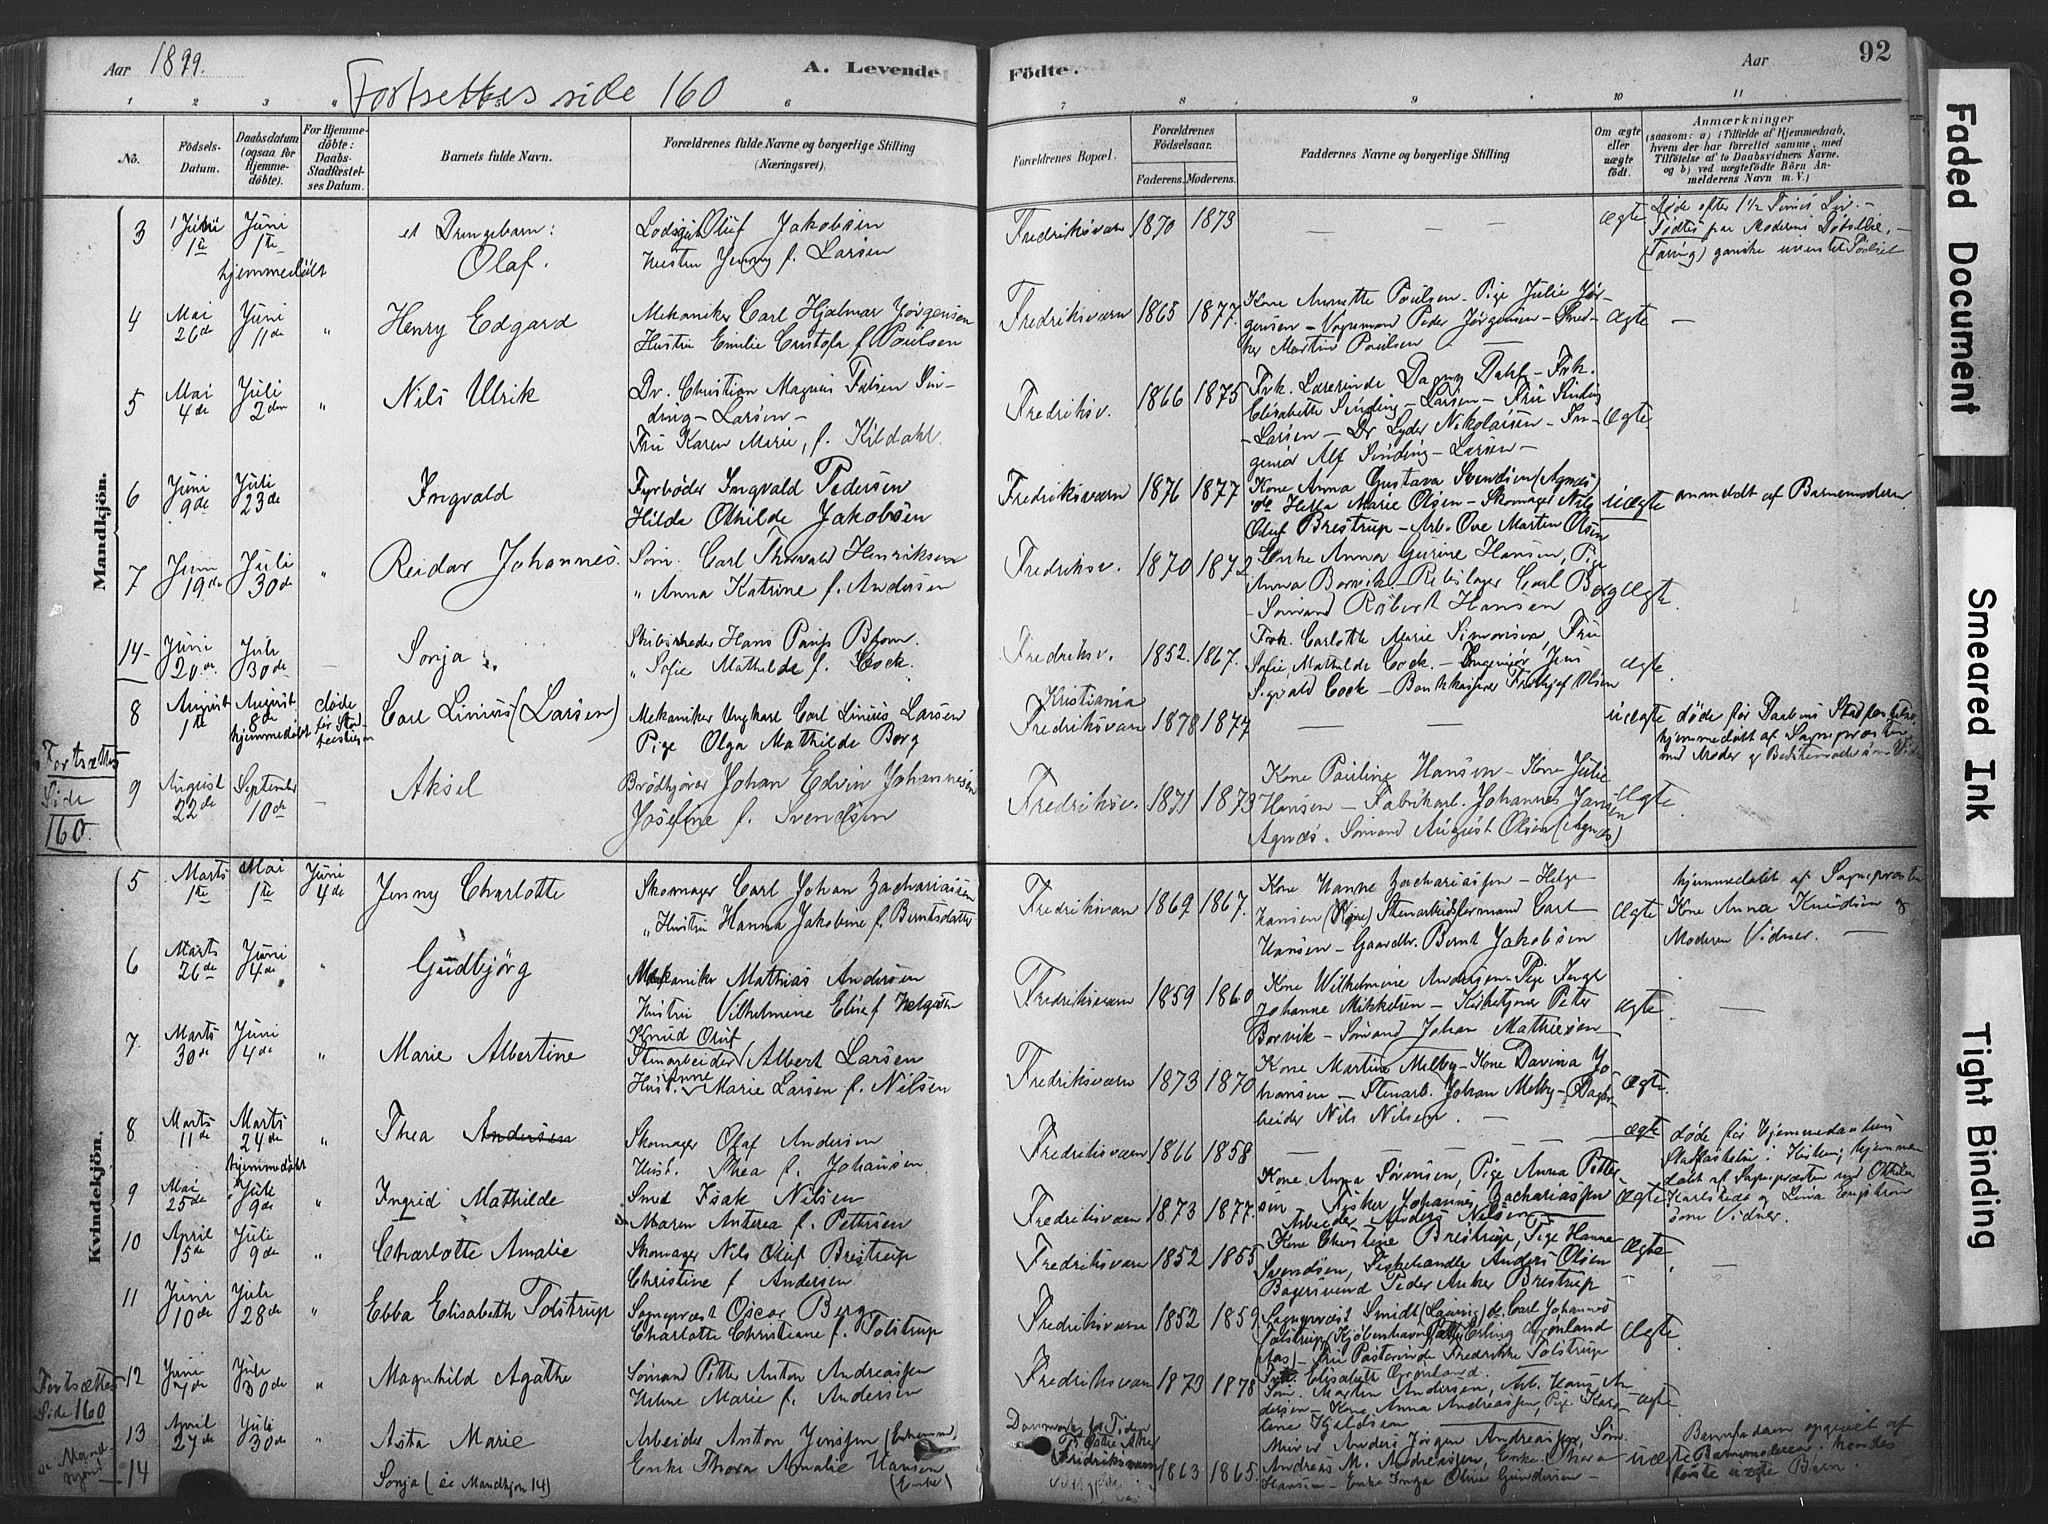 Aar 1899.
Fortsettes side 160
A. Levende
Födte.
Aar
92
1 2 3 " 6 7 8 9 10 11
No.
Födsels-
Datum.
Daabsdatum
(ogsaa for
Hjemme-
döbte).
For Hjemme-
döbte:
Daabs-
Stadfæstel-
ses Datum.
Barnets fulde Navn.
Forældrenes fulde Navne og borgerlige Stilling
(Næringsvei).
Forældrenes Bopæl.
Forældrenes
Födselsaar.
Faderens. Moderens.
Faddernes Navne og borgerlige Stilling
Om ægte
eller
uægte
födt.
Anmærkninger
(saasom: a) i Tilfælde af Hjemmedaab,
hvem der har forrettet samme, med
Tilföielse af to Daabsvidners Navne,
og b) ved uægtefödte Börn An-
melderens Navn m. V.)
Mandkjön.
3 Juni 1te Juni 1te
hjemmedøbt
et Drengebarn:
Olaf.
Lodsgut Oluf Jakobsen
Hustru Jenny f. Larsen
Fredriksværn 1870 1873 — — —
Ægte
Døde efter 1½ Times Liv. —
Fødtes paa Moderens
ganske uventet Fødsel
4 Mai 26de Juni 11de "
Henry Edgard
Mekaniker Carl Hjalmar Jørgensen
Hustru Emilie f. Poulsen
Fredriksværn 1865 1877.
Kone Annette Poulsen - Pige Julie Jør-
gensen - Peder Jørgensen - Smed-
Martin Poulsen —
Ægte —
5 Mai 4de Juli 2den "
Nils Ulrik
Dr. Christian Magnus Falsen Sin-
ding - Larsen -
Fru Karen Marie, f. Kildahl.
Fredriksv. 1866 1875
Frk. Lærerinde Dagny Dahl - Frk.
Elisabeth Sinding - Larsen - Fru Sinding
- Larsen - Dr Lyder Nikolaisen - In-
geniør Alf Sinding - Larsen -
Ægte.
6 Juni 9de Juli 23de
Ingvald
Fyrbøder Ingvald Pedersen
Hilda Othilde Jakobsen
Fredriksværn 1876 1877
Kone Anna Gustava Svendsen (Agnæs)
do Helga Marie Olsen - Skomager Nils
Oluf Brestrup - Arb. Ove Martin Olsen
uægte
anmeldt af Barnemoderen
7 Juni 19de Juli 30de "
Reidar Johannes.
Søm. Carl Thorvald Henriksen
" Anna Katrine f. Andersen
Fredriksv. 1870 1872
Enke Anna Gurine Hansen, Pige
Anna Borvik - Rebslager Carl Borg
- Sømand Robert Hansen
Ægte.
14 - Juni 20de Juli 30de —
Sonja
Skibsreder Hans Blom.
" Sofie Mathilde f. Cock.
Fredriksv. 1852. 1867.
Frk. Carlotte Marie Simonsen, Fru
Sofie Mathilde Cock. - Ingeniør Jens
Sigvald Cock - Bankkasserer Frithjof Olsen
Ægte.
8 August 1te August 8de
hjemmedøbt
døde
før Stad-
Carl Linius (Larsen)
Mekaniker Ungkarl Carl Linius Larsen
Pige Olga Mathilde Borg
Kristiania
Fredriksværn 1878 1877 — —
uægte
døde før Daabens Stadfæstelse,
hjemmedøbt af Sognepræsten
med Moder og Bedstemoder som Vidner
Fortsættes
Side
160.
9 August 22de September 10de —
Aksel
Brødkjører Johan Edvin Johannesen
Josefine f. Svendsen
Fredriksv. 1871 1873
Kone Pauline Hansen - Kone Julie
Hansen - Fabrikarb. Johannes Jansen
Agnæs. Sømand August Olsen (Agnæs)
Ægte.
Kvindekjön.
5 Marts 1te Mai 1te Juni 4de
Jenny Charlotte
Skomager Carl Johan Zachariassen
" Hustru Hanna Jakobine f. Berntsdatter
Fredriksværn 1869 1867.
Kone Hanne Zachariassen - Helga
Hansen (Kone) Stenarbeidsformand Carl
Hansen - Gaardbr. Bernt Jakobsen
Ægte
hjemmedøbt af Sognepræsten
Kone Anna Knudsen og
Moderen Vidner. —
6 Marts 26de Juni 4de "
Gudbjørg
Mekaniker Mathias Andersen
Hustru Vilhelmine Elise f. Helgesen
Fredriksværn 1859 1860
Kone Wilhelmine Andersen - Pige Inga
Johanne Mikkelsen - Kirketjener Peter
Borvik - Sømand Johan Mathiesen
ægte. —
7. Marts 30de Juni 4de "
Marie Albertine
Knud Oluf
Stenarbeider Albert Larsen
Hust. Anne Marie Larsen f. Nilsen
Fredriksværn 1873 1870
Kone Martine Melby - Kone Davina Jo-
hansen - Stenarb. Johan Melby - Dagar-
beider Nils Nilsen. —
Ægte.
8 Marts 11de Marts 24de
hjemmedøbt "
Thea Andersen
Skomager Olaf Andersen
Hust. Thea f. Johansen.
Fredriksværn 1866 1858 — —
ægte
døde før Hjemmedaabens
Stadfæstelse i Kirken; hjemme-
døbt af Sognepræsten med
Karlstedt og Lina Engstrøm
som Vidner.
9 Mai 25de Juli 9de "
Ingrid Mathilde
Smed Isak Nilsen
Maren Antrea f. Pettersen
Fredriksværn 1873 1877.
Kone Anna Sørensen, Pige Anna Petter-
sen Fisker Johannes Zachariassen
Arbeider Anders Nilsen
Ægte
10 April 15de Juli 9de "
Charlotte Amalie
Skomager Nils Oluf Brestrup
Christine f Andersen
Fredriksværn 1852 1855
Kone Christine Brestrup, Pige Hanna
Svendsen, Fiskehandler Anders Olsen
Bagersvend Peder Anker Brestrup
Ægte. —
11 Juni 10de Juli 28de "
Ebba Elisabeth Tolstrup
Sognepræst Oscar Berg
Charlotte Christiane f. Tolstrup
Fredriksværn 1852 1859
Sogneprest Smidt (Laurvig) do. Carl Johannes
Tolstrup (Kjøbenhavn) Erling Grønland
(Aas) - Fru Pastorinde Fredrikke Tolstrup
Frk. Elisabeth Grønland.
Ægte.
Fortsættes
Side 160
12 Juni 7de Juli 30de "
Magnhild Agathe
Sømand Petter Anton Andreassen
Helene Marie f. Andersen
Fredriksværn 1873 1878
Søm. Martin Andersen, Arb. Hans An-
dersen - Kone Anna Andreassen, Pige Karo-
line Kjeldsen
ægte.
13 April 27de Juli 30de "
Asta Marie
Arbeider Anton Jenssen (Enkemand)
Enke Thora Amalie Hansen
(Enke)
Fredriksværn 1863 1865.
Murer Anders Jørgen Andreassen, Søm.
Andreas M. Andreassen, Enke Thora
Hansen - Enke Inga Olive Gundersen -
uægte
Barnefaderen opgivet af
Barnemoderen. hendes
første uægte Barn.
se Mand-
kjøn!
14
Sonja (se Mandkjøn 14)
Faded Document
Smeared Ink
Tight Binding